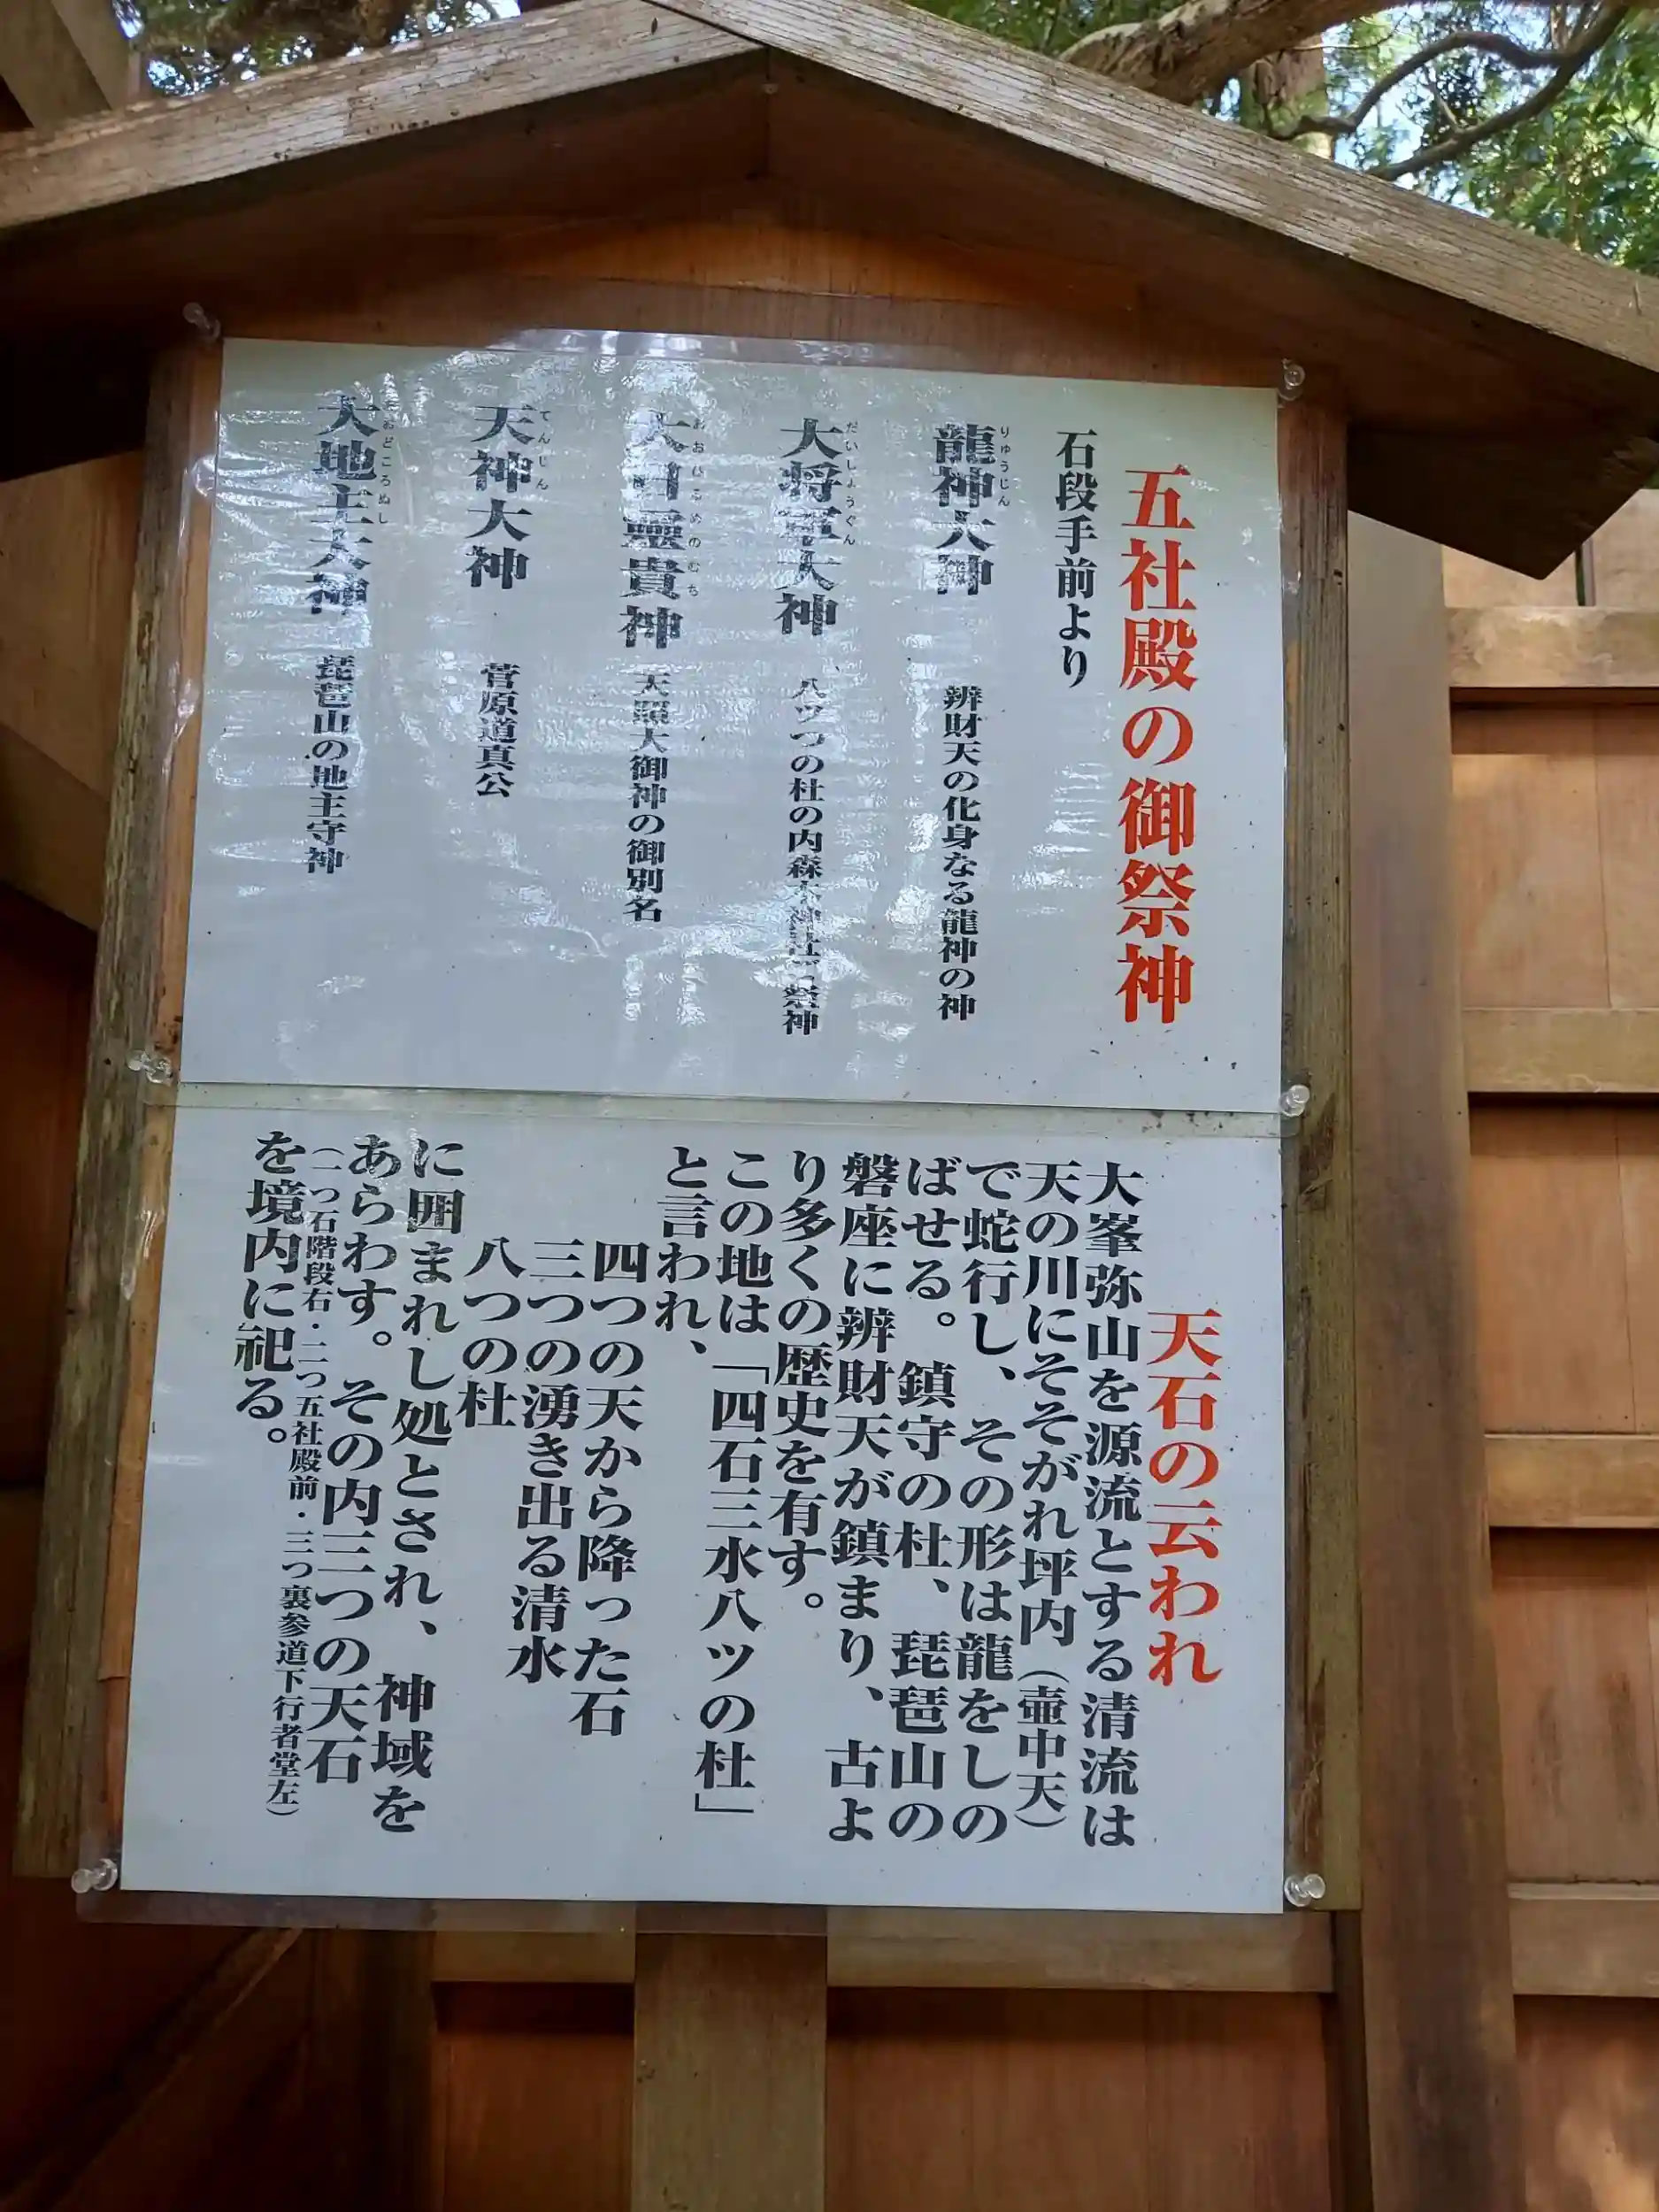 五社殿の御祭神
石段手前より
龍神大神 辨財天の化身なる龍神の神
りゅうじん
大将軍大神 八ツつの杜の内森本神社御祭神
だいしょうぐん
大日靈貴神 天照大御神の御別名
おおひるめのむち
天神大神 菅原道真公
てんじん
大地主大神 琵琶山の地主守神
おおどころぬし
天石の云われ
大峯弥山を源流とする清流は
天の川にそそがれ坪内(壷中天)
で蛇行し、その形は龍をしの
ばせる。鎮守の杜、琵琶山の
磐座に辨財天が鎮まり、古よ
り多くの歴史を有す。
この地は「四石三水八ツの杜」
と言われ、
四つの天から降った石
三つの湧き出る清水
八つの杜
に囲まれし処とされ、神域を
あらわす。その内三つの天石
(一つ石階段右・二つ五社殿前・三つ裏参道下行者堂左)
を境内に祀る。